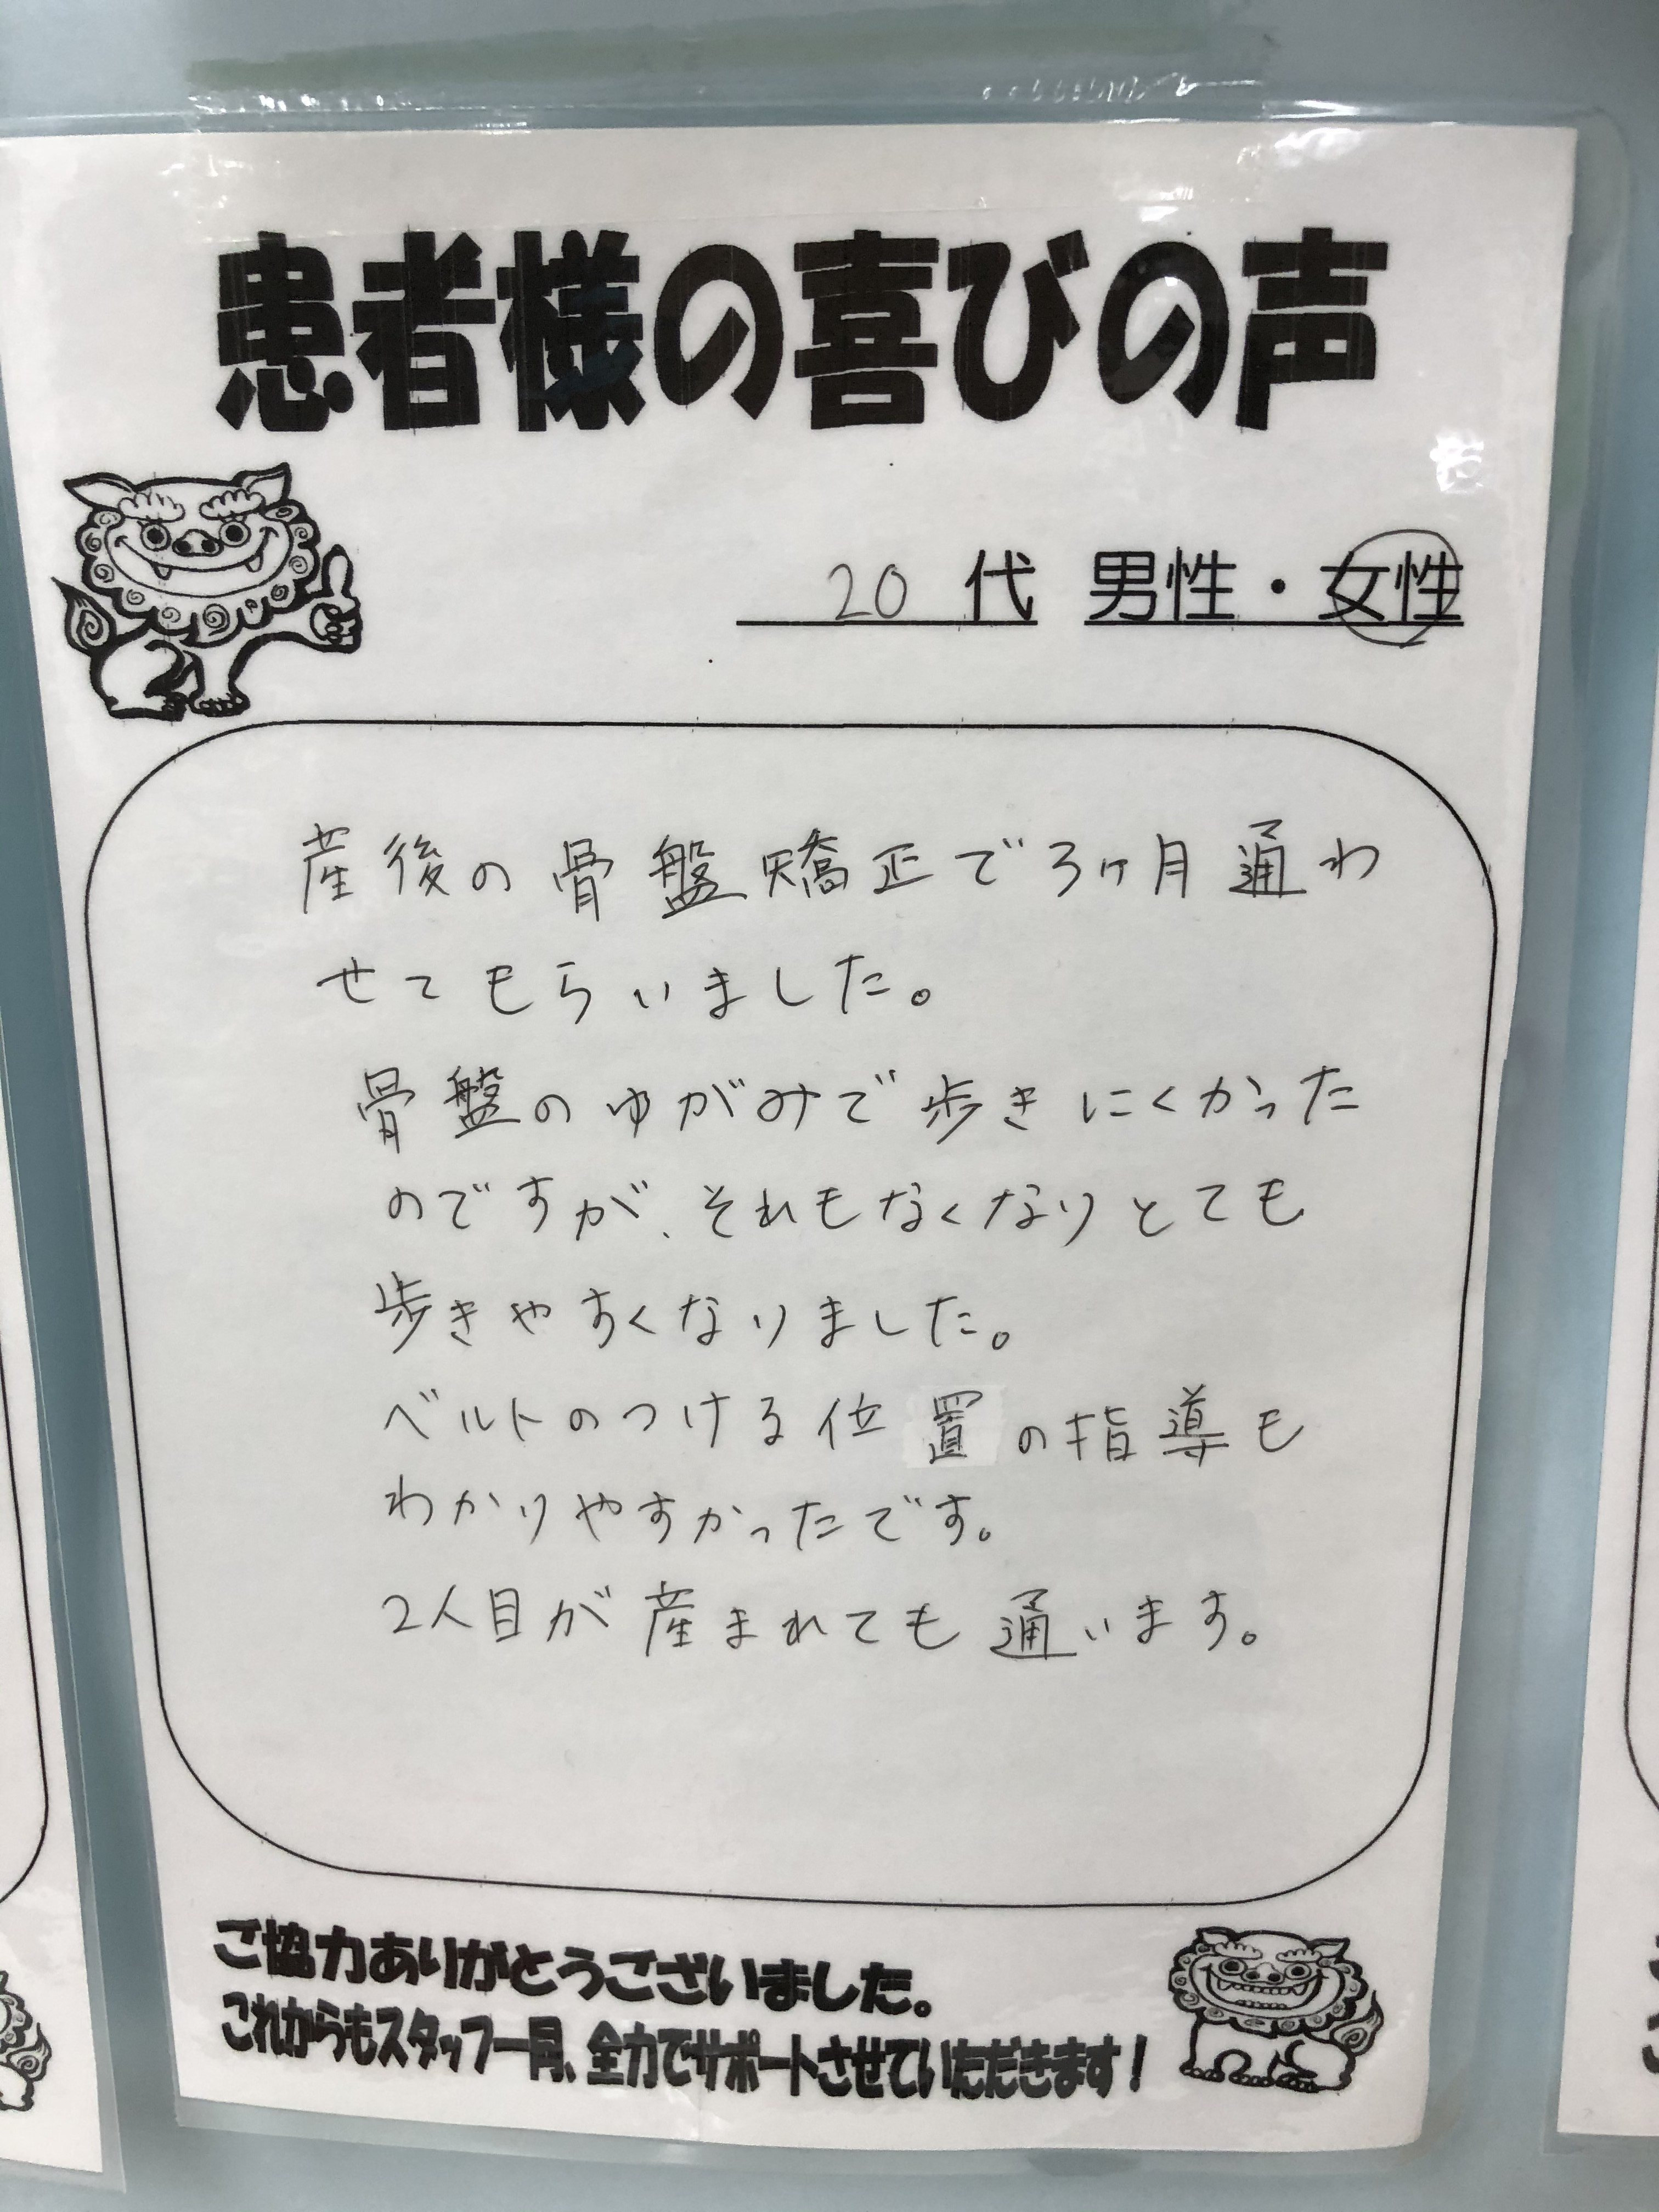 患者様の喜びの声
20 代 男性・女性
産後の骨盤矯正で3ヶ月通わ
せてもらいました。
骨盤のゆがみで歩きにくかった
のですが、それもなくなりとても
歩きやすくなりました。
ベルトのつける位置の指導も
わかりやすかったです。
2人目が産まれても通います。
ご協力ありがとうございました。
これからもスタッフ一同、全力でサポートさせていただきます！